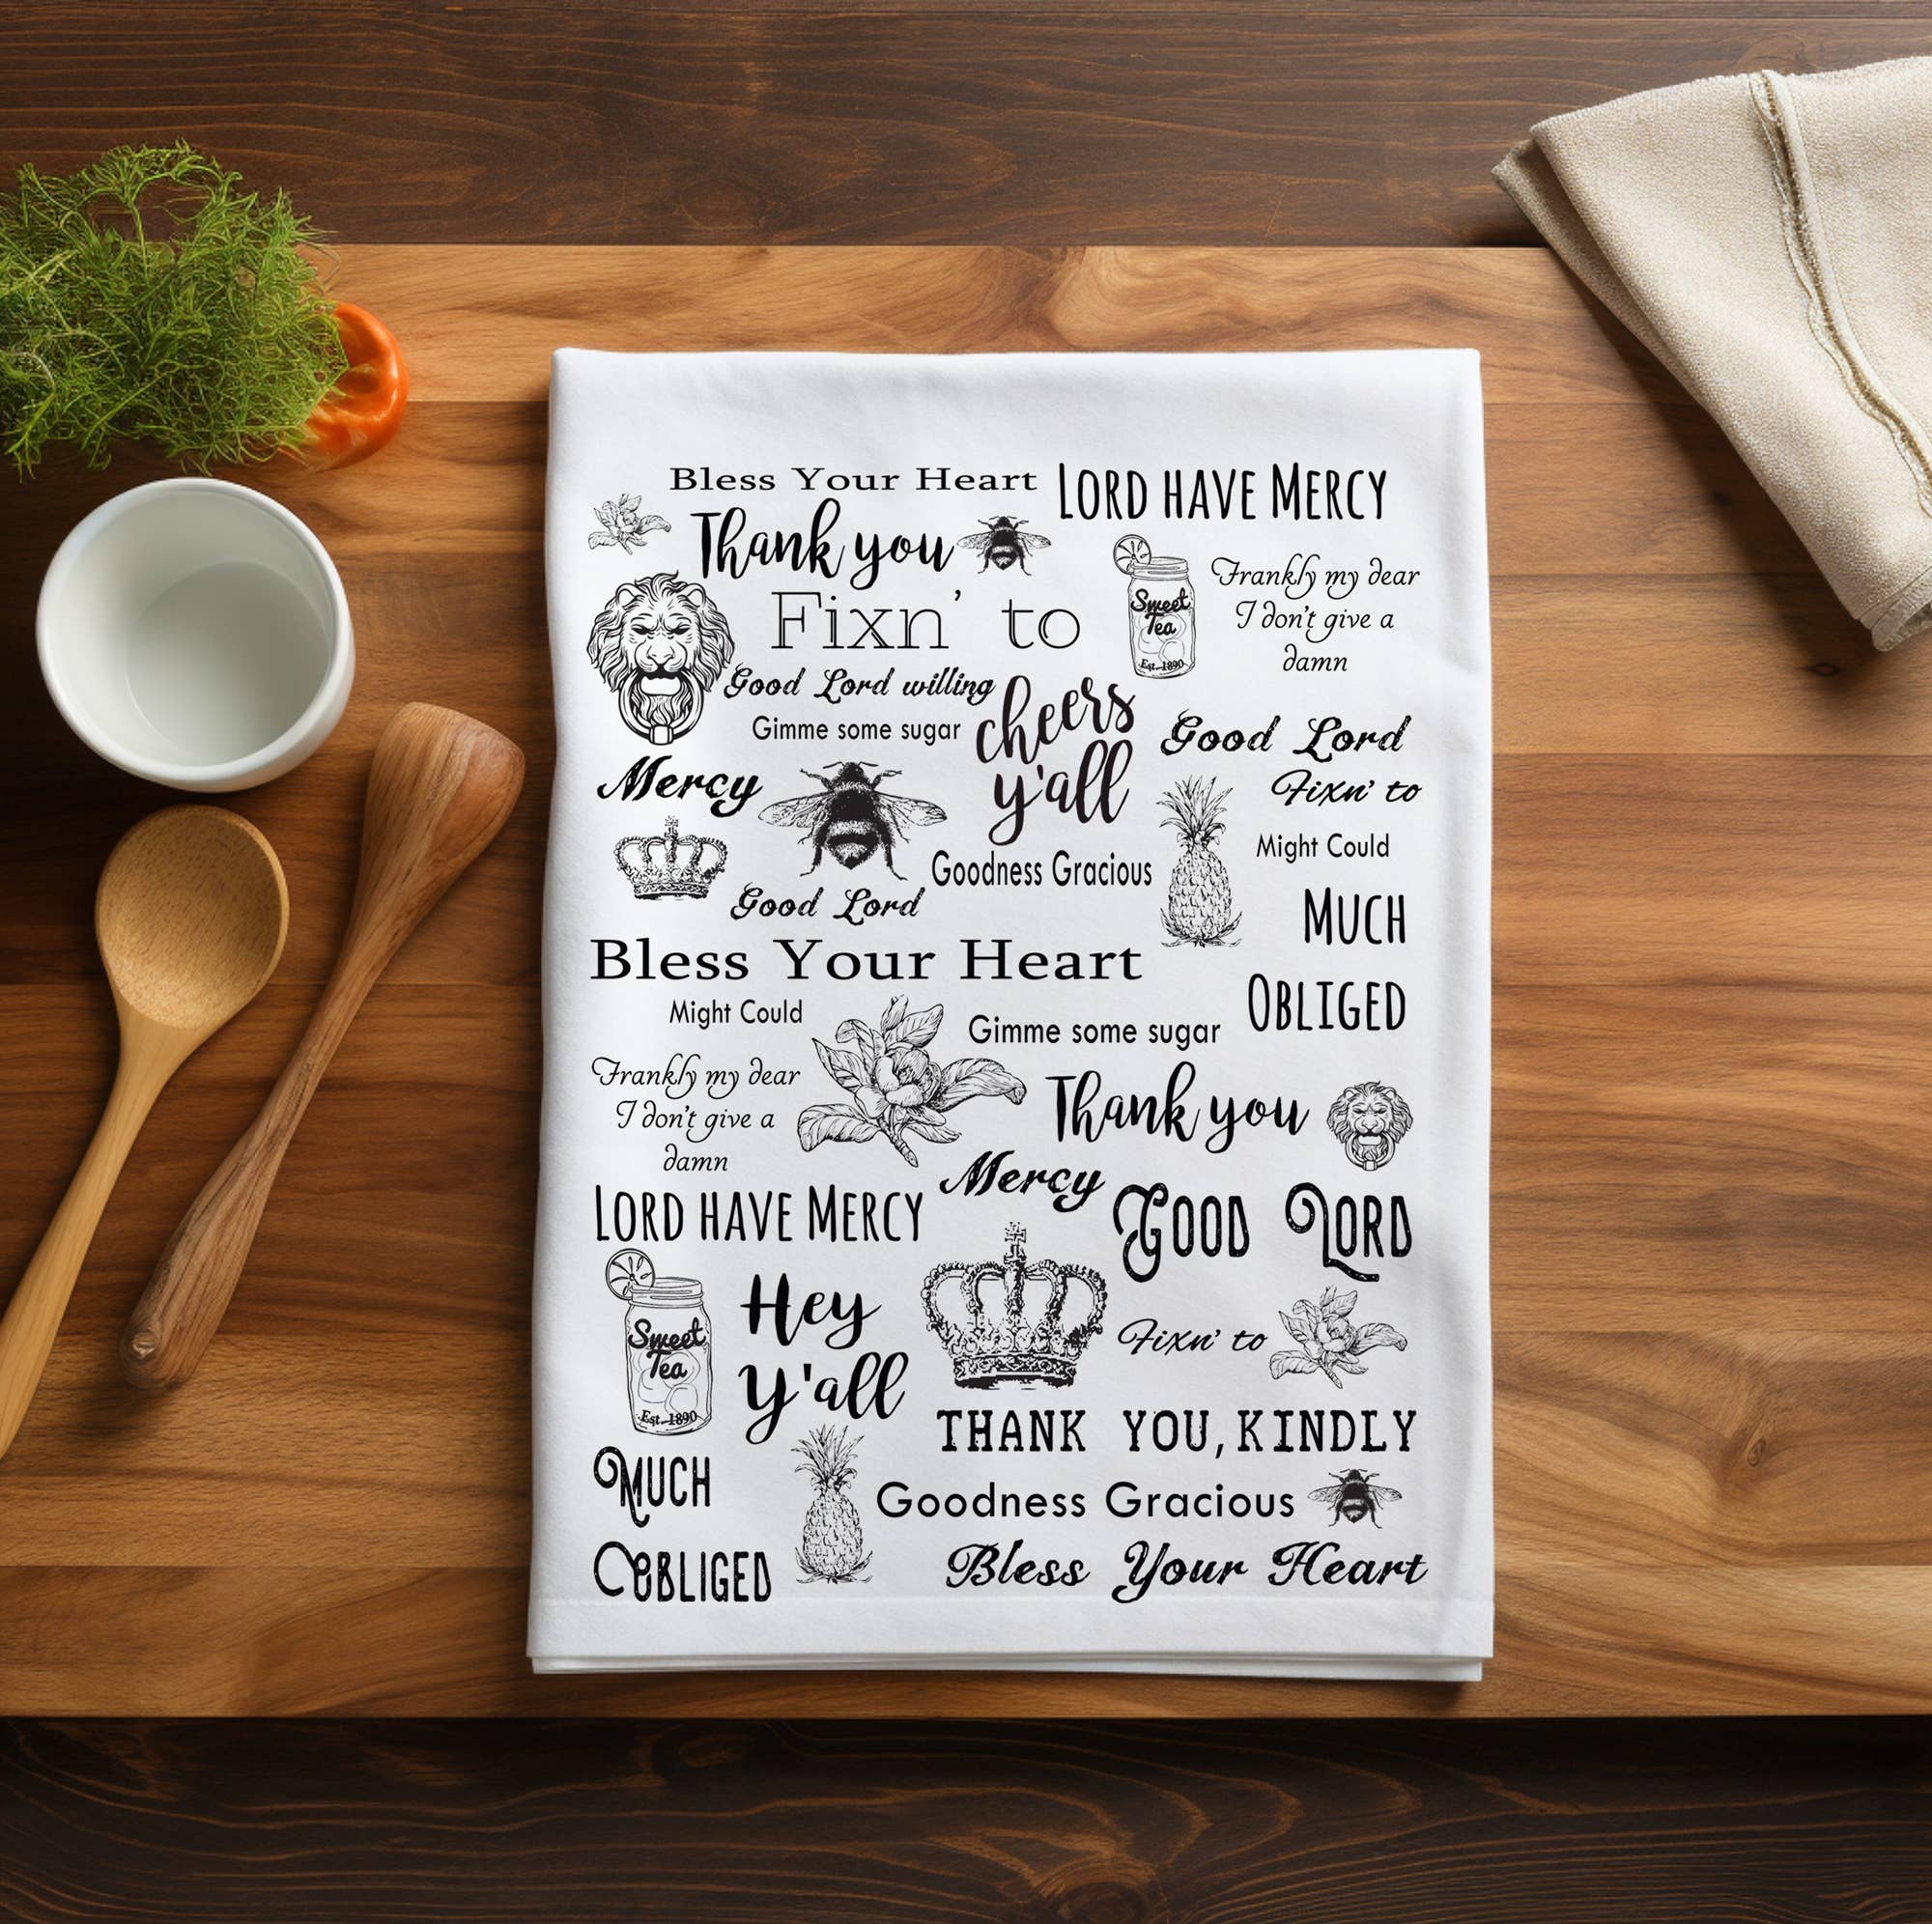 Bless Your Heart
LORD HAVE MERCY
Thank you
Frankly my dear
I don't give a
damn
Sweet
Tea
Est. 1890
Fixn' to
Good Lord willing
Gimme some sugar
cheers
y'all
Good Lord
Mercy
Fixn' to
Might Could
Goodness Gracious
Good Lord
MUCH
OBLIGED
Bless Your Heart
Might Could
Gimme some sugar
Frankly my dear
I don't give a
damn
Thank you
Mercy
LORD HAVE MERCY
GOOD LORD
Sweet
Tea
Est. 1890
Hey
Y'all
Fixn' to
THANK YOU, KINDLY
MUCH
OBLIGED
Goodness Gracious
Bless Your Heart